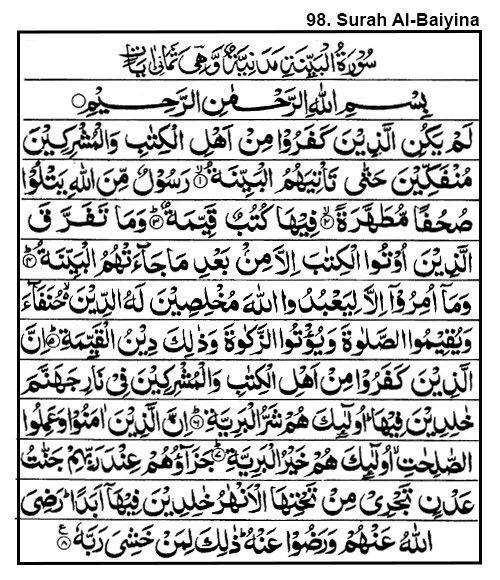 98. Surah Al-Baiyina
سُوْرَةُ الْبَيِّنَةِ مَدَنِيَّةٌ وَّهِىَ ثَمَانِىْ اٰيَاتٍ
بِسْمِ اللّٰهِ الرَّحْمٰنِ الرَّحِيْمِ
لَمْ يَكُنِ الَّذِيْنَ كَفَرُوْا مِنْ اَهْلِ الْكِتٰبِ وَالْمُشْرِكِيْنَ
مُنْفَكِّيْنَ حَتّٰى تَاْتِيَهُمُ الْبَيِّنَةُ ۙ‏﴿۱﴾ رَسُوْلٌ مِّنَ اللّٰهِ يَتْلُوْا
صُحُفًا مُّطَهَّرَةً ۙ‏﴿۲﴾ فِيْهَا كُتُبٌ قَيِّمَةٌ ؕ‏﴿۳﴾ وَمَا تَفَرَّقَ
الَّذِيْنَ اُوْتُوا الْكِتٰبَ اِلَّا مِنْۢ بَعْدِ مَا جَآءَتْهُمُ الْبَيِّنَةُ ؕ‏﴿۴﴾
وَمَاۤ اُمِرُوْۤا اِلَّا لِيَعْبُدُوا اللّٰهَ مُخْلِصِيْنَ لَهُ الدِّيْنَ ۙ حُنَفَآءَ
وَيُقِيْمُوا الصَّلٰوةَ وَيُؤْتُوا الزَّكٰوةَ وَذٰلِكَ دِيْنُ الْقَيِّمَةِ ؕ‏﴿۵﴾ اِنَّ
الَّذِيْنَ كَفَرُوْا مِنْ اَهْلِ الْكِتٰبِ وَالْمُشْرِكِيْنَ فِىْ نَارِ جَهَنَّمَ
خٰلِدِيْنَ فِيْهَا ؕ اُولٰٓئِكَ هُمْ شَرُّ الْبَرِيَّةِ ؕ‏﴿۶﴾ اِنَّ الَّذِيْنَ اٰمَنُوْا وَعَمِلُوا
الصّٰلِحٰتِ ۙ اُولٰٓئِكَ هُمْ خَيْرُ الْبَرِيَّةِ ؕ‏﴿۷﴾ جَزَآؤُهُمْ عِنْدَ رَبِّهِمْ جَنّٰتُ
عَدْنٍ تَجْرِىْ مِنْ تَحْتِهَا الْاَنْهٰرُ خٰلِدِيْنَ فِيْهَاۤ اَبَدًا ؕ رَضِىَ
اللّٰهُ عَنْهُمْ وَرَضُوْا عَنْهُ ؕ ذٰلِكَ لِمَنْ خَشِىَ رَبَّهٗ ‏﴿۸﴾ ع